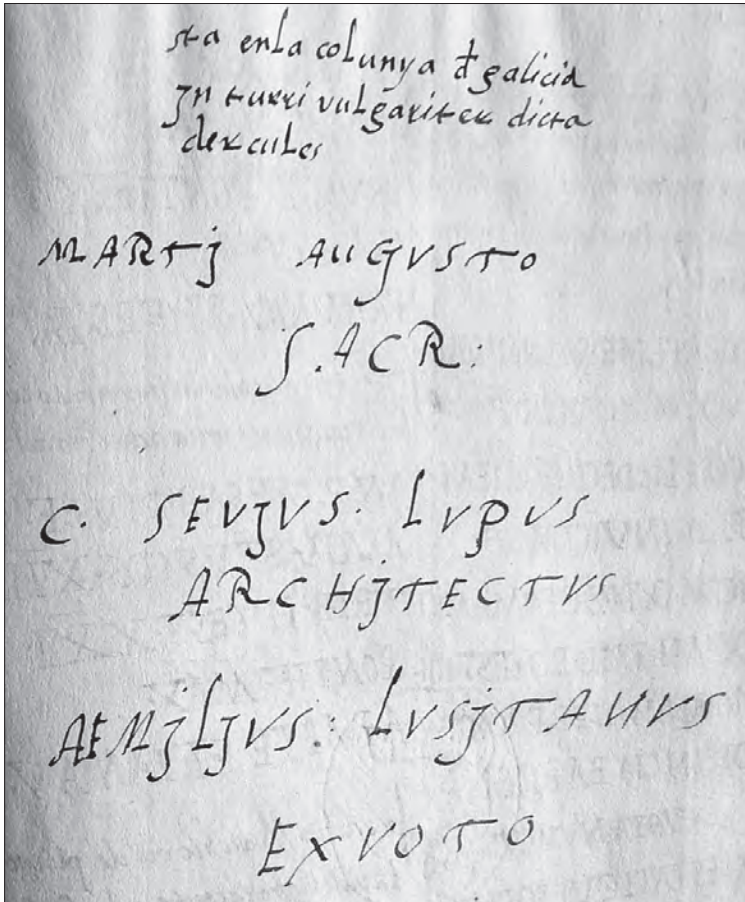 sta enla colunya đ galicia
jn turri vulgariter dicta
dercules
MARTj AUGVSTO
S.ACR:
C. SEVJVS. LVPVS
ARCHjTECTVS
ÆMjLJVS: LVSjTANVS
EXVOTO